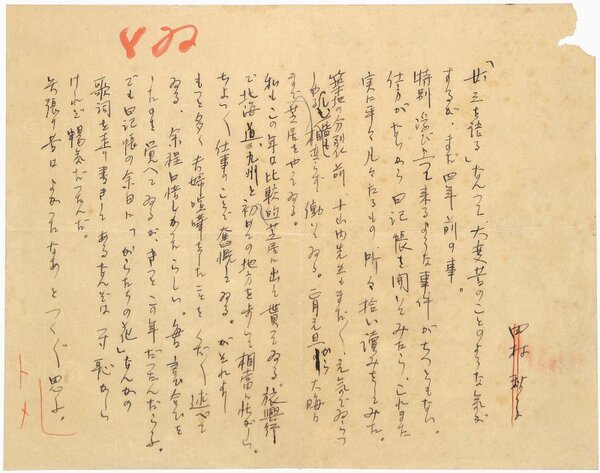 田村秋子
「廿三を語る」なんて、大変昔のことのような気が
するが、まだ四年前の事。
特別浮び上って来るような事件がちっともない。
仕方がないから日記帳を開いてみたら、これまた
実に平々凡々たるもの、所々拾い讀みをしてみた。
築地の分裂前、小山内先生もまだ元気でゐらっ
しゃる。相変らず働いてゐる。一月元旦から大晦日
まで芝居をやってゐる。
私もこの年は比較的芝居に出して貰ってゐる。旅興行
で北海道、九州と初めての地方を歩いて相当に忙がしい。
ちょいちょい仕事のことで奮慨してゐる。がそれより
もっと多く夫婦喧嘩をしたことをくだくだ述べて
ゐる。余程口惜しかったらしい。
したのも覚へてゐるが、きっとこの年だったんだらう。
でも日記帳の余白に「からたちの花」なんかの
歌詞を走り書きしてあるなんぞは一寸恥かしい
けれど暢気だったんだ。
矢張り昔はよかったなあとつくづく思ふ。
トメ